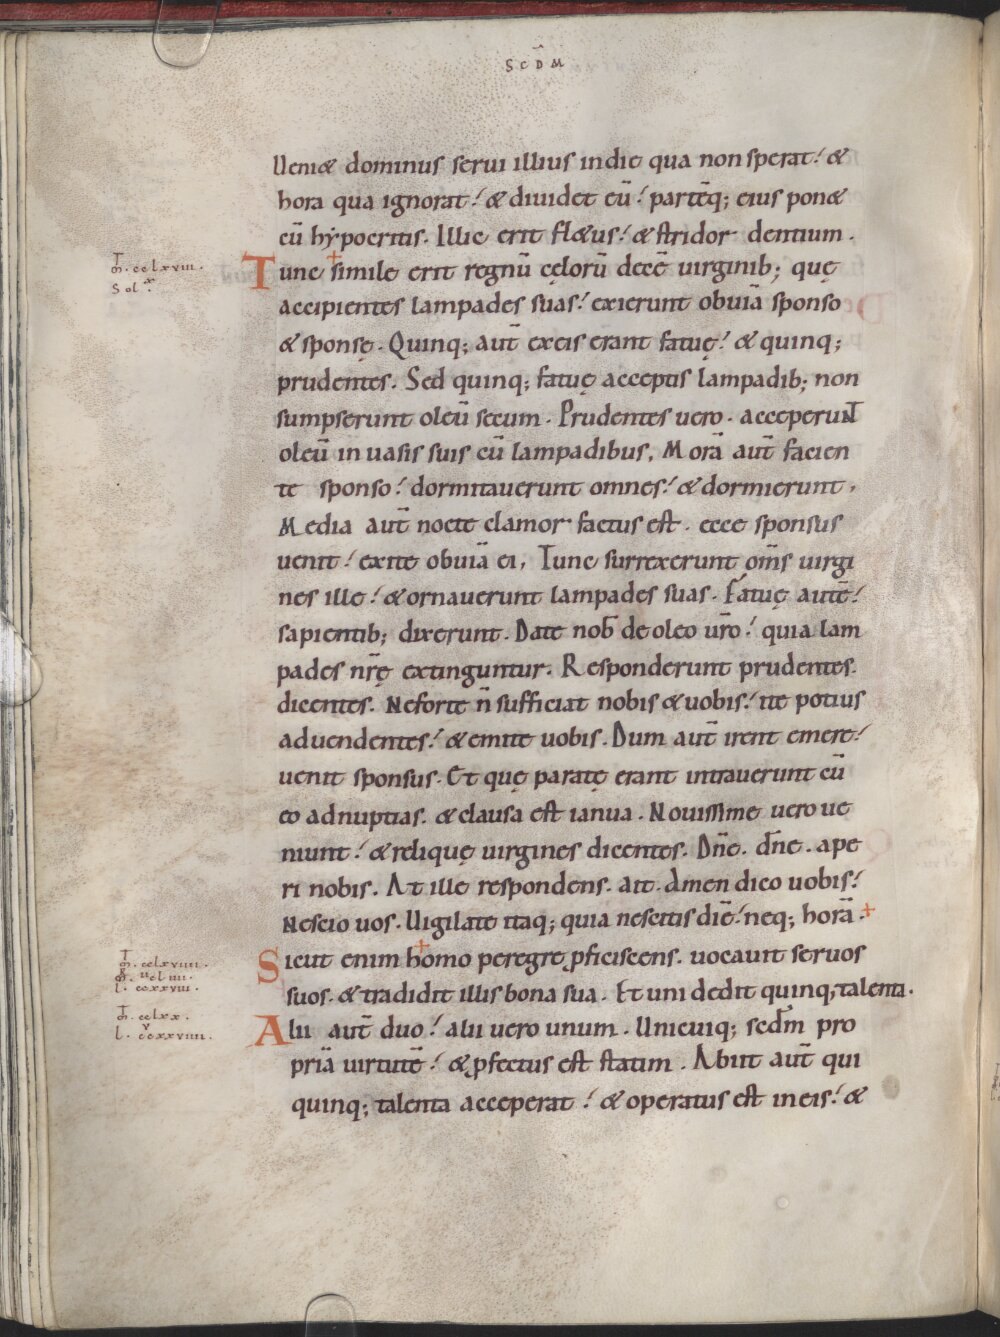 SCDM̄
Ueni& dominus serui illius indie qua non sperat. &
hora qua ignorat. & diuidet eū. partēq; eius pon&
eū hẏpocritis. Illic erit fl&us. & stridor dentium.
m̄. cclxviii.
Sol.
Tunc simile erit regnū cęlorū decē uirginib; quę
accipientes lampades suas. exierunt obuiā sponso
& sponsę. Quinq; aut̄ exeis erant fatuę. & quinq;
prudentes. Sed quinq; fatuę acceptis lampadib; non
sumpserunt oleū secum. Prudentes uero. acceperunt
oleū in uasis suis cū lampadibus. Morā aut̄ facien
te sponso. dormitauerunt omnes. & dormierunt.
Media aut̄ nocte clamor factus est. ecce sponsus
uenit. exite obuiā ei. Tunc surrexerunt om̄s uirgi
nes ille. & ornauerunt lampades suas. Fatuę autē.
sapientib; dixerunt. Date nob̄ de oleo ur̄o. quia lam
pades nr̄ę extinguntur. Responderunt prudentes.
dicentes. Neforte n̄ sufficiat nobis & uobis. ite potius
aduendentes. & emite uobis. Dum aut̄ irent emere.
uenit sponsus. Et quę paratę erant intrauerunt cū
eo adnuptias. & clausa est ianua. Nouissime uero ue
niunt. & reliquę uirgines dicentes. Dn̄e. dn̄e. ape
ri nobis. At ille respondens. ait. Amen dico uobis.
Nescio uos. Uigilate itaq; quia nescitis diē. neq; horā.
m̄. cclxviiii.
l. ccxxviii.
Sicut enim homo peregre ꝓficiscens. uocauit seruos
suos. & tradidit illis bona sua. Et uni dedit quinq; talenta.
m̄. cclxx.
l. ccxxviiii.
Alii aut̄ duo. alii uero unum. Unicuiq; scdm̄ pro
priā uirtutē. & ꝓfectus est statim. Abiit aut̄ qui
quinq; talenta acceperat. & operatus est in eis. &